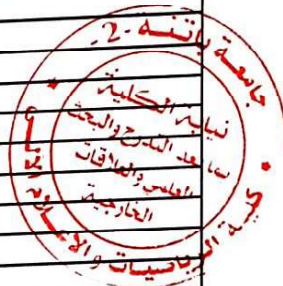 جامعة باتنة -2-
كلية الرياضيات والإعلام الآلي
نيابة الكلية
ما بعد التدرج والبحث
العلمي والعلاقات
الخارجية